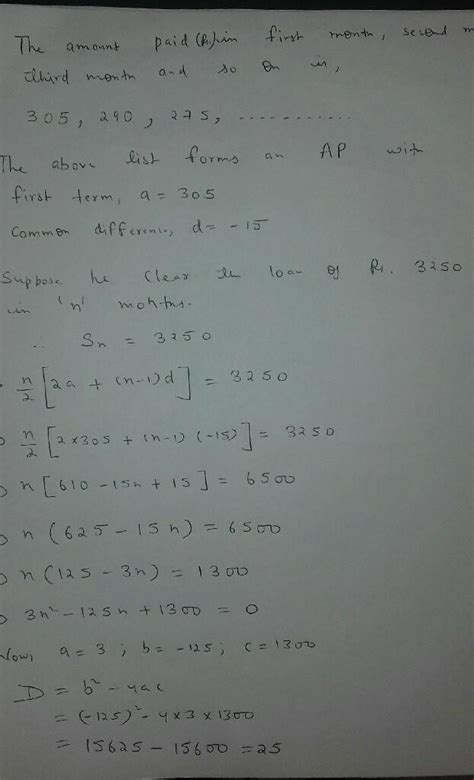 The amount paid (Rs) in first month, second m
third month and so on is,
305, 290, 275, ............
The above list forms an AP with
first term, a = 305
Common difference, d = -15
Suppose he clear the loan of Rs. 3250
in 'n' months.
∴ Sn = 3250
n/2 [2a + (n-1)d] = 3250
n/2 [2×305 + (n-1) (-15)] = 3250
n[610 - 15n + 15] = 6500
n(625 - 15n) = 6500
n(125 - 3n) = 1300
3n² - 125n + 1300 = 0
Now, a = 3 ; b = -125 ; c = 1300
D = b² - 4ac
= (-125)² - 4×3×1300
= 15625 - 15600 = 25